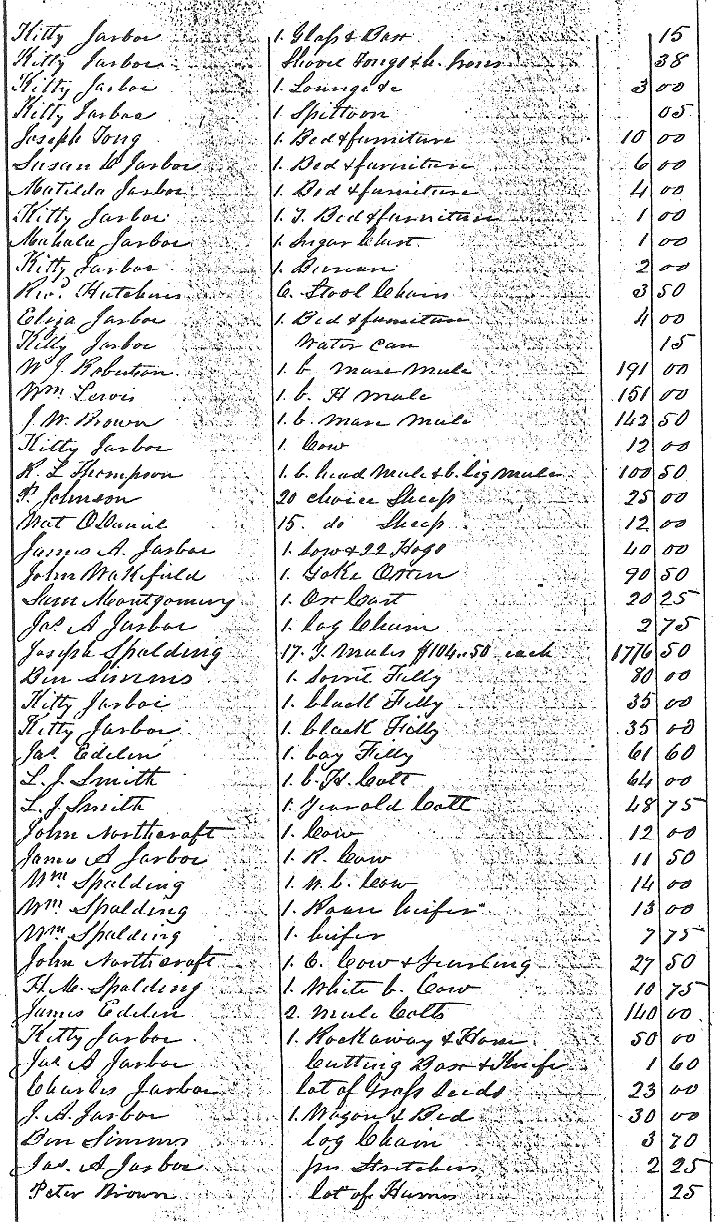 Kitty Jarboe 1. Glass & Box 15
Kitty Jarboe Shovel Tongs & A. Irons 38
Kitty Jarboe 1. Lounge &c 3 00
Kitty Jarboe 1. Spittoon 05
Joseph Tong 1. Bed & furniture 10 00
Susan Jarboe 1. Bed & furniture 6 00
Matilda Jarboe 1. Bed & furniture 4 00
Kitty Jarboe 1. T. Bed & furniture 1 00
Mahala Jarboe 1. Sugar Chest 1 00
Kitty Jarboe 1. Bureau 2 00
Hutchins 6. Stool Chairs 3 50
Eliza Jarboe 1. Bed & furniture 4 00
Kitty Jarboe Water Can 15
W. J. Robertson 1. b mare mule 191 00
Wm Lewis 1. b. H mule 151 00
J. W. Brown 1. b. mare mule 142 50
Kitty Jarboe 1 Cow 12 00
R. L Thompson 1. b. head Mule & b. lig mule 100 50
P. Johnson 20 choice Sheep 25 00
Mat ODaniel 15. do Sheep 12 00
James A. Jarboe 1. Sow & 22 Hogs 40 00
John Wakifield 1. Yoke Oxen 90 50
Sam Montgomery 1. Ox Cart 20 25
Jas A Jarboe 1. log Chain 2 75
Joseph Spalding 17. Y. Mules $104.50 each 1776 50
Ben Simms 1. Sorrel Filly 80 00
Kitty Jarboe 1. black Filly 35 00
Kitty Jarboe 1. black Filly 35 00
Jas Edelin 1. bay Filly 61 60
L. J. Smith 1. b. H. Colt 64 00
L. J. Smith 1. Yearold Colt 48 75
John Northcraft 1. Cow 12 00
James A Jarboe 1. R. Cow 11 50
Wm Spalding 1. w. b. Cow 14 00
Wm Spalding 1. Roan heifer 13 00
Wm Spalding 1. heifer 7 75
John Northcraft 1. C. Cow & Yearling 27 50
H. M. Spalding 1. White b. Cow 10 75
James Edelin 2. Mule Colts 140 00
Kitty Jarboe 1. Rockaway & Harn 50 00
Jas A Jarboe Cutting Box & Knife 1 60
Charles Jarboe lot of Grass Seeds 23 00
J. A. Jarboe 1. Wagon & Bed 30 00
Ben Simms log Chain 3 70
Jas. A Jarboe pr Stretchers 2 25
Peter Brown lot of Hames 25